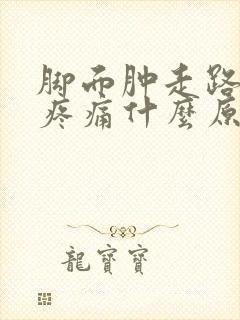 脚而肿走路
疼痛什麼原
龍寶寶